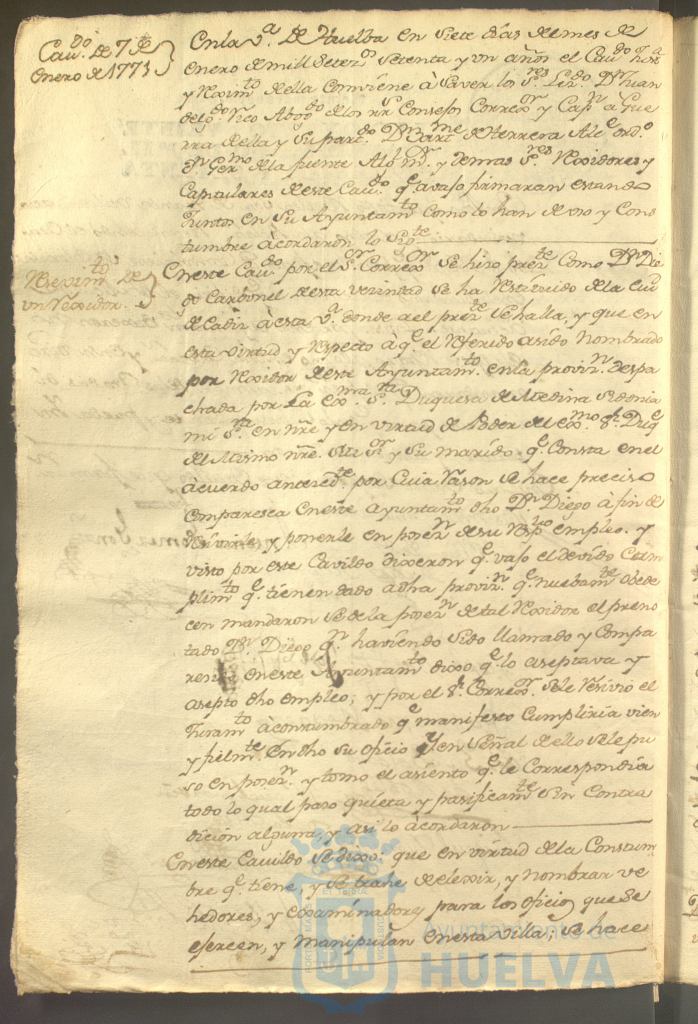 Cav.do de 7 de
Enero de 1771
En la V.a de Huelva en siete dias del mes de
Enero de mill setez.os setenta y un años el Cav.do Just.a
y Reximi.to de ella Conviene à Saver los S.res Liz.do D.n Juan
Abog.do de los rr.s Consejos Correx.or y Cap.n à Gue
rra de ella y su part.do D.n Bart.me de Herrera Alc.e ord.o
D.n Ger.mo de la fuente Alg.l m.or y demas S.res Rexidores y
Capitulares de este Cav.do q.e avajo firmaran estando
Juntos en su Ayuntam.to como lo han de uso y Cos
tumbre àcordaron lo Sig.te
Reximi.to de
un Rexidor.
En este Cav.do por el S.or Correx.or se hizo pres.te Como D.n Die
go Carbonel de esta vecindad se ha Restituido de la Ciu.d
de Cadiz à esta V.a donde al pres.te se halla, y que en
esta virtud y Respecto à q.e el Referido a sido Nombrado
por Rexidor de este Ayuntam.to en la provis.n despa
chada por La Ex.ma S.ra Duquesa de Medina Sidonia
mi S.ra en nre y en virtud de Poder del Ex.mo S.r Duq.e
del Mismo nre. mi S.or y su marido q.e Consta en el
àcuerdo anteced.te por Cuia Razon se hace preciso
Comparesca en este Ayuntam.to dho D.n Diego à fin de
Resivirle, y ponerle en poses.n de su Resp.vo empleo. y
visto por este Cavildo dixeron q.e vajo el devido Cum
plim.to q.e tienen dado a dha provis.n q.e nuebam.te obede
cen mandaron se de la poses.n de tal Rexidor el preno
tado D.n Diego q.n haviendo sido llamado y Compa
rendo en este Ayuntam.to dixo q.e lo aseptava y
asepto dho empleo; y por el S.r Correx.or se le Resivio el
Juram.to àcostumbrado q.e manifesto Cumpliria vien
y fielm.te en dho su oficio y en señal de ello se le pu
so en poses.n y tomo el asiento q.e le Correspondia
todo lo qual paso quieta y pasificam.te sin Contra
dicion alguna, y asi lo àcordaron
En este Cavildo se dixo: que en virtud de la Costum
bre q.e tiene, y se trahe de elexir, y nombrar ve
hedores, y examinadores para los oficios que se
exercen, y manipulan en esta villa; se hace
Ayuntamiento de
HUELVA